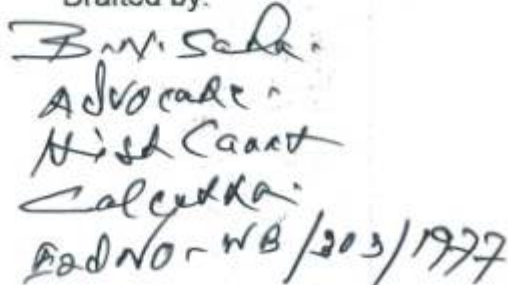 Drafted by:
B.N. Saha.
Advocate.
High Court
Calcutta.
End NO - WB/203/1977